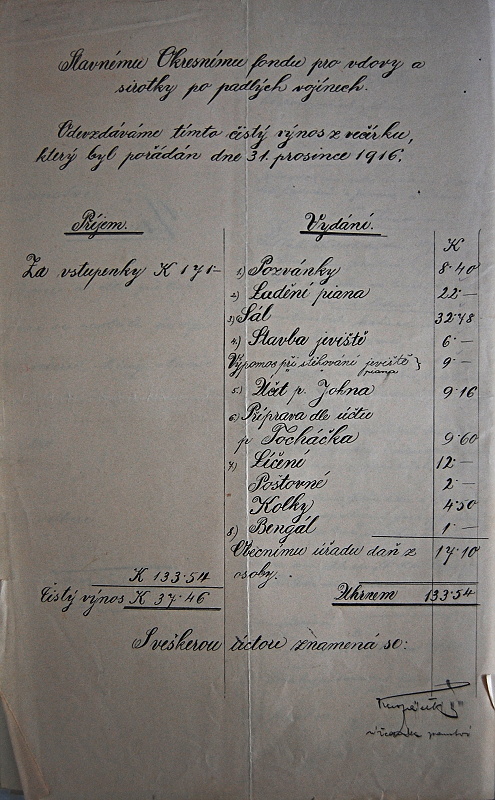 Slavnému Okresnímu fondu pro vdovy a
sirotky po padlých vojínech.
Odevzdáváme tímto čistý výnos z večírku,
který byl pořádán dne 31. prosince 1916.
Příjem.
Vydání.
K
Za vstupenky K 171-
1) Pozvánky 8·40
2) Ladění piana 22·—
3) Sál 32·78
4) Stavba jeviště 6·—
Výpomoc při stěhování jeviště } 9·—
piana
5) Účit p. Johna 9·16
6) Příprava dle účtu
p Tocháčka 9·60
7) Líčení 12·—
Poštovné 2·—
Kolky 4·50
8) Bengál 1·—
Obecnímu úřadu daň z 17·10
osoby.
K 133·54
Úhrnem 133·54
Čistý výnos K 37·46
S veškerou úctou znamená se: